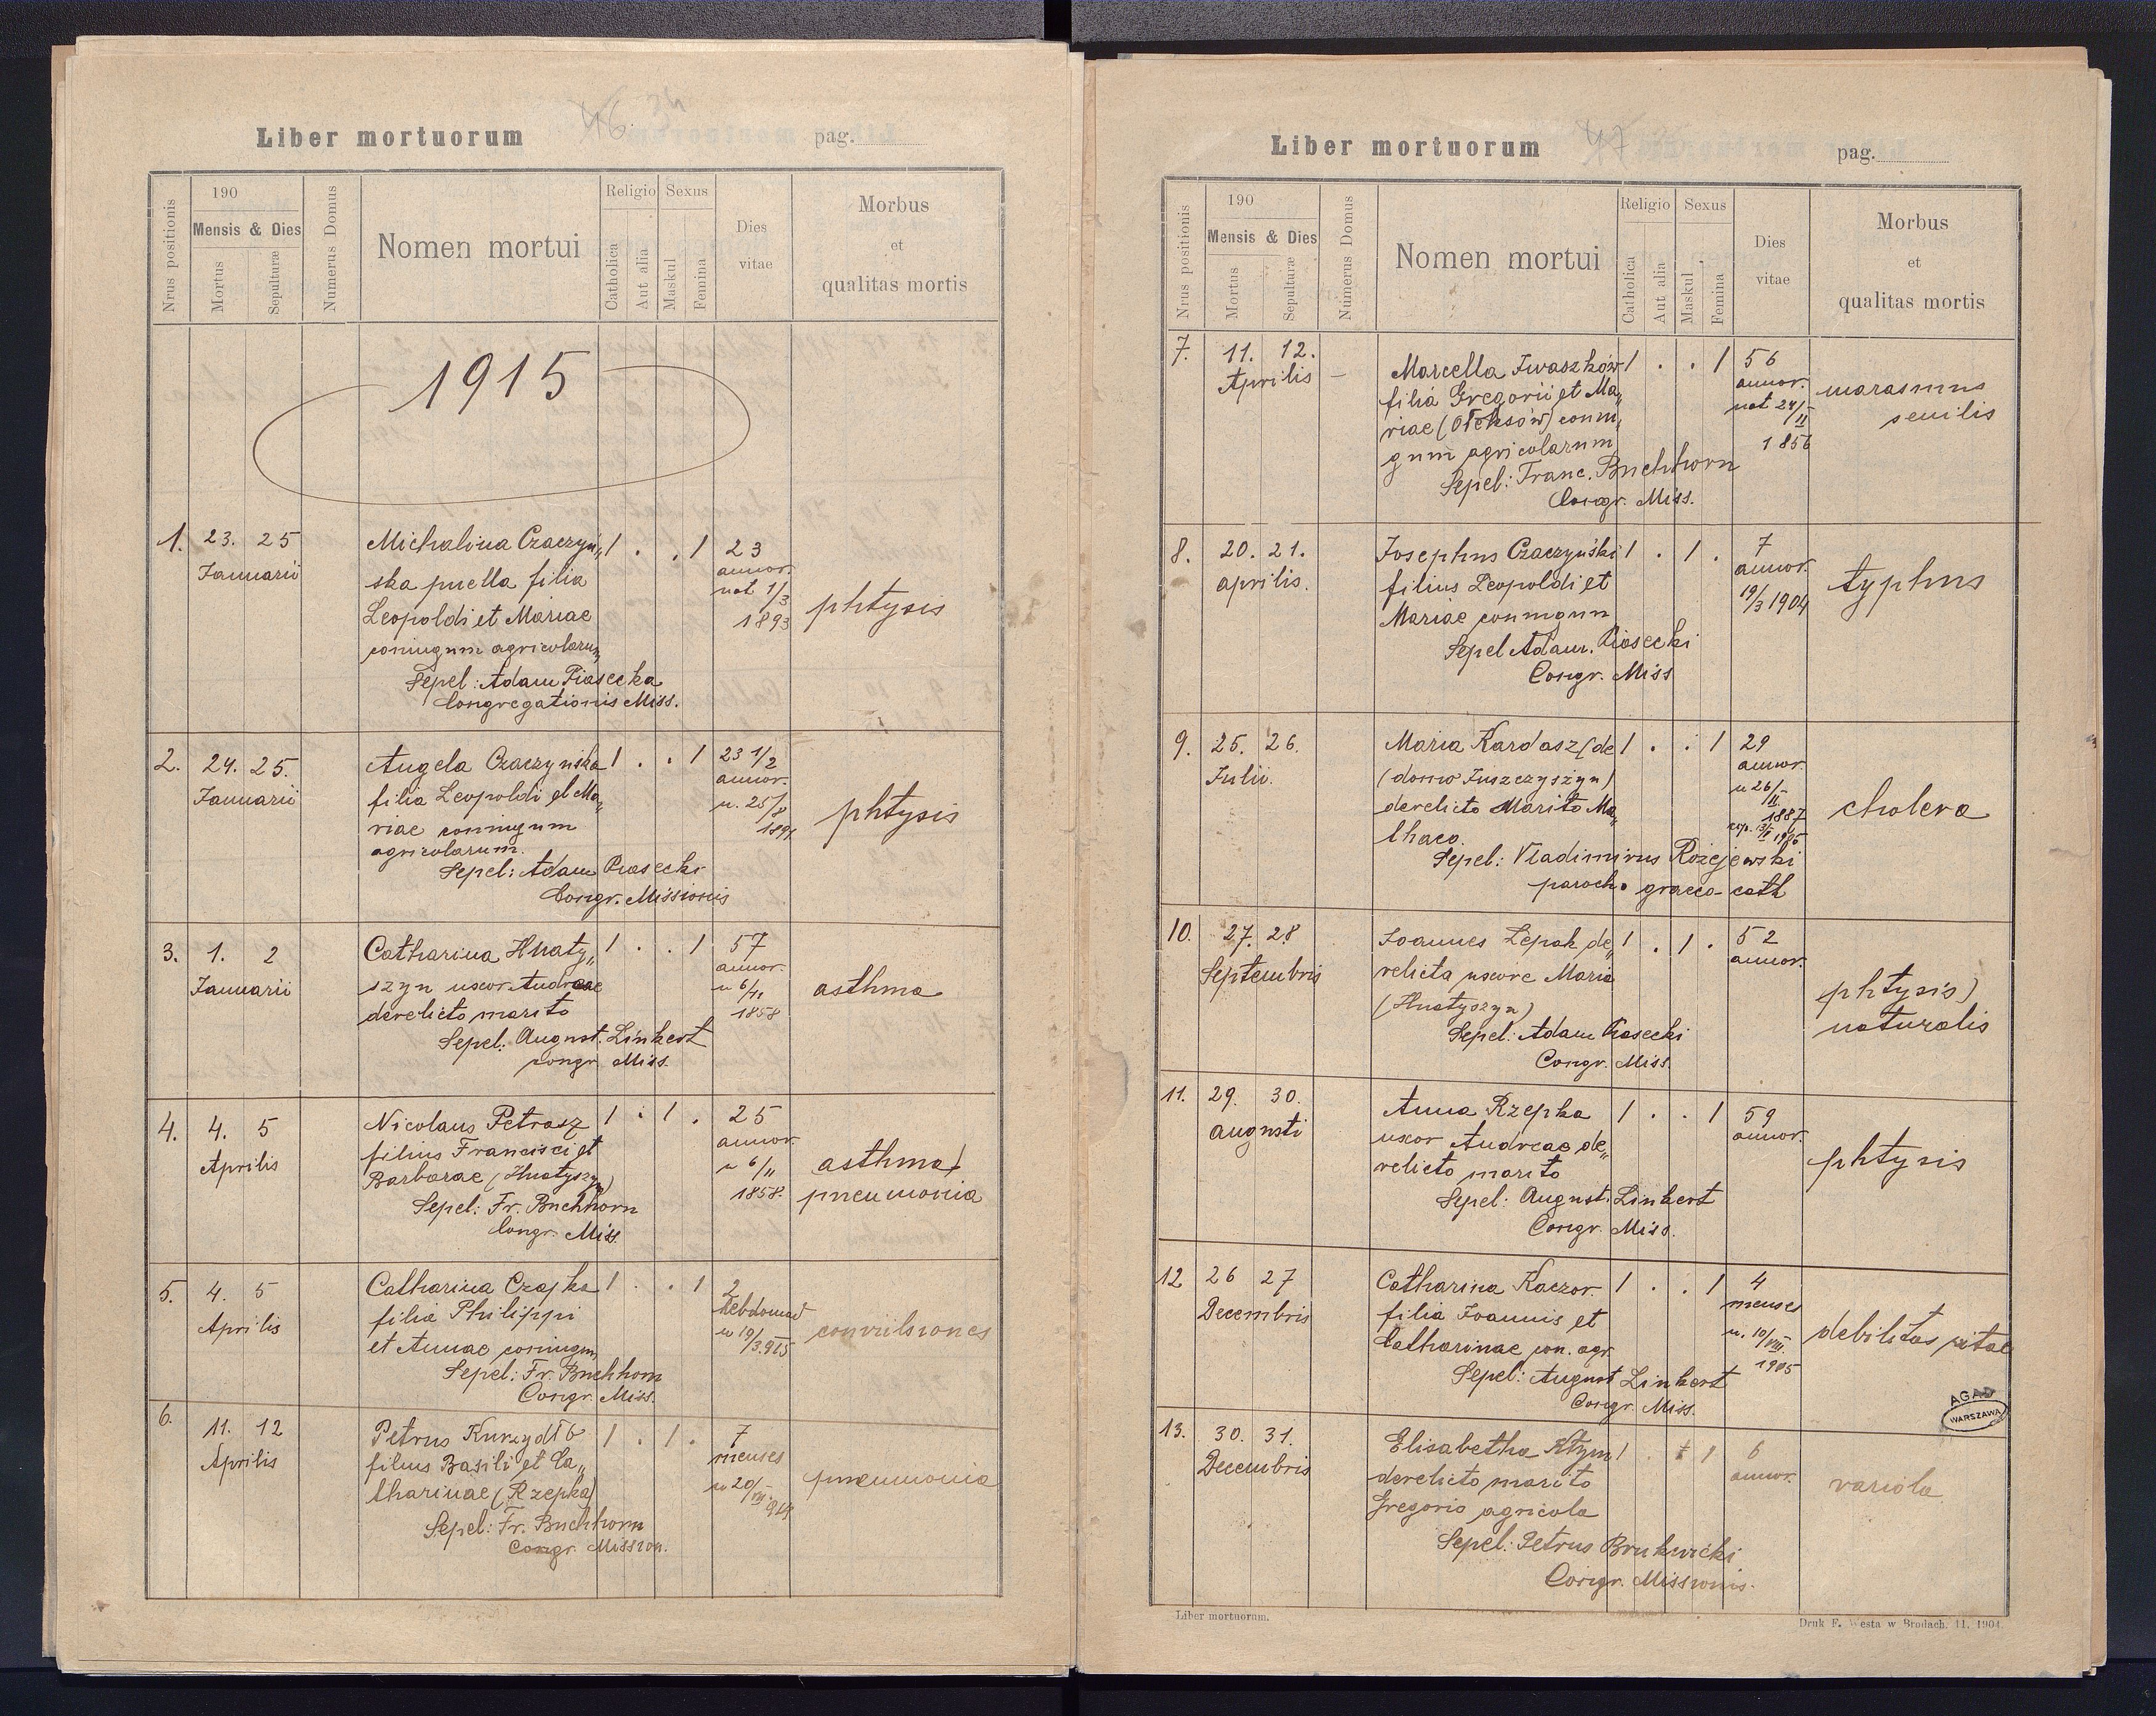 46
Liber mortuorum
pag.
Nrus positionis
190
Mensis & Dies
Mortus
Sepulturæ
Numerus Domus
Nomen mortui
Religio
Catholica
Aut alia
Sexus
Maskul
Femina
Dies
vitae
Morbus
et
qualitas mortis
1915
1. 23. 25 Michalina Czaczyń„ 1 . . 1 23
Januarii ska puella filia annor.
Leopoldi et Mariae nat 1/3 phtysis
coniugum agricolarum 1893
Sepel: Adam Piasecka
Congregationis Miss.
2. 24. 25. Angela Czaczyńska 1 . . 1 23 1/2
Januarii filia Leopoldi et Ma„ annor.
riae coniugum n. 25/8 phtysis
agricolarum. 1891
Sepel: Adam Piasecki
Congr. Missionis
3. 1. 2 Catharina Hnaty„ 1 . . 1 57
Januarii szyn uxor Andreae annor. asthma
derelicto marito n 6/11
1858
Sepel: August. Linkert
congr. Miss.
4. 4. 5 Nicolaus Petrasz 1 . 1 . 25
Aprilis filius Francisci et annor.
Barbarae (Hnatyszyn) n 6/11 asthma
1858. pneumonia
Sepel: Fr. Buchhorn
Congr. Miss.
5. 4. 5 Catharina Czajka 1 . . 1 2
Aprilis filia Philippi hebdomad
et Annae coniugum n 19/3.915 convulsiones
Sepel: Fr. Buchhorn
Congr. Miss.
6. 11. 12 Petrus 1 . 1 . 7
Aprilis filius Basili et Ca„ menses
tharinae (Rzepka) n 20/ pneumonia
Sepel: Fr. Buchhorn
Congr. Mission.
47
Liber mortuorum
pag.
Nrus positionis
190
Mensis & Dies
Mortus
Sepulturæ
Numerus Domus
Nomen mortui
Religio
Catholica
Aut alia
Sexus
Maskul
Femina
Dies
vitae
Morbus
et
qualitas mortis
7. 11. 12. Marcella Iwaszków 1 . . 1 56
Aprilis – filia Gregorii et Ma„ annor. marasmus
riae (Oleksów) coniu„ nat 24/II senilis
gum agricolarum 1856
Sepel: Franc. Buchhorn
Congr. Miss.
8. 20. 21. Josephus Czaczyński 1 . 1 . 7
aprilis. filius Leopoldi et annor. typhus
Mariae coniugum 19/3 1904
Sepel Adam. Piasecki
Congr. Miss
9. 25. 26. Maria Kardasz (de 1 . . 1 29
Julii. (domo Juszczyszyn) annor.
derelicto Marito Ma„ n 26/II cholera
thaeo. 1887
Sepel: Vladimirus Rożejewski
paroch. graeco-cath
10. 27. 28 Joannes Lepak de„ 1 . 1 . 52
Septembris relicta uxore Maria annor.
(Hnatyszyn) phtysis)
naturalis
Sepel: Adam Piasecki
Congr. Miss.
11. 29. 30. Anna Rzepka 1 . . 1 59
augusti uxor Andreae de„ annor.
relicto marito phtysis
Sepel: August. Linkert
Congr. Miss.
12 26 27 Catharina Kaczor. 1 . . 1 4
Decembris filia Joannis et menses
Catharinae con. agr. n. 10/VIII. debilitas vitae
1905
Sepel: August Linkert
Congr. Miss.
AGAD
WARSZAWA
13. 30. 31. Elisabetha Kłym 1 . 1 6
Decembris derelicto marito annor. variola
Gregorio agricola
Sepel: Petrus Brukwicki
Congr. Missionis.
Liber mortuorum.
Druk F. Westa w Brodach. 11. 1904.